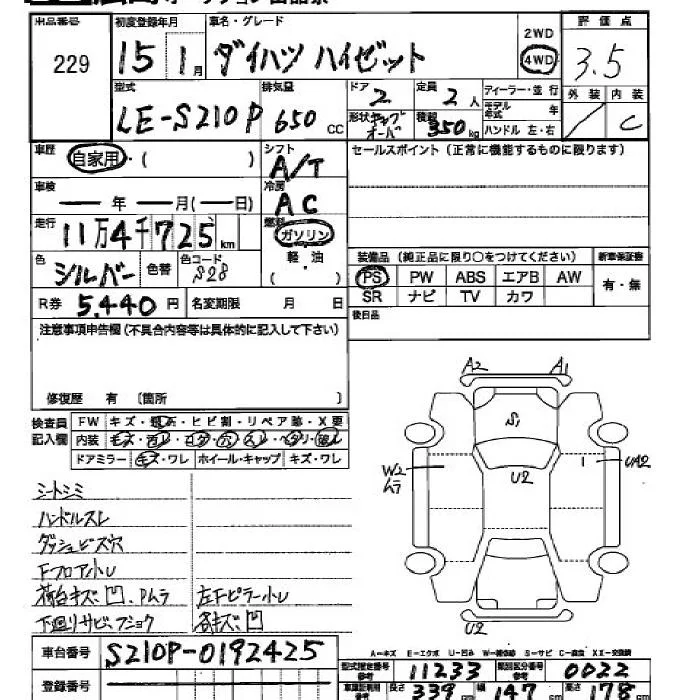 出品番号 初度登録年月 車名・グレード 2WD 評価点
229 15年1月 ダイハツ ハイゼット 4WD 3.5
型式 排気量 ドア 2 定員 2人 ディーラー・並行 外装 内装
LE-S210P 650cc 形状 キャブオーバ 積載 350kg モデル年式 年 / C
ハンドル 左・右
車歴 自家用・( ) シフト A/T セールスポイント(正常に機能するものに限ります)
車検 ― 年 ― 月(― 日) 冷房 AC
走行 11万4千725km 燃料 ガソリン
軽・油
( )
色 シルバー 色替 色コード S28
装備品(純正品に限り○をつけてください) 新車保証書
PS PW ABS エアB AW 有・無
SR ナビ TV カワ
R券 5,440円 名変期限 月 日 後日品
注意事項申告欄(不具合内容等は具体的に記入して下さい)
修復歴 有 [箇所 ]
検査員記入欄 FW キズ・飛石・ヒビ割・リペア跡・X要
内装 キズ・汚レ・コゲ・穴・スレ・ヘタリ・破レ
ドアミラー キズ・ワレ ホイール・キャップ キズ・ワレ
A2 A1
S1
U2
W2 ムラ
1 UA2
U2
シートシミ
ハンドルスレ
ダッシュビス穴
Fフロア小レ
荷台キズ凹、Pムラ 左Fピラー小レ
下廻りサビ・フショク 各キズ凹
A-キズ E-エクボ U-凹み W-補修跡 S-サビ C-腐食 XX-交換済
車台番号 S210P-0192425 型式指定番号 11233 類別区分番号 0022
登録番号 車輌寸法 長さ 339cm 幅 147cm 高さ 178cm